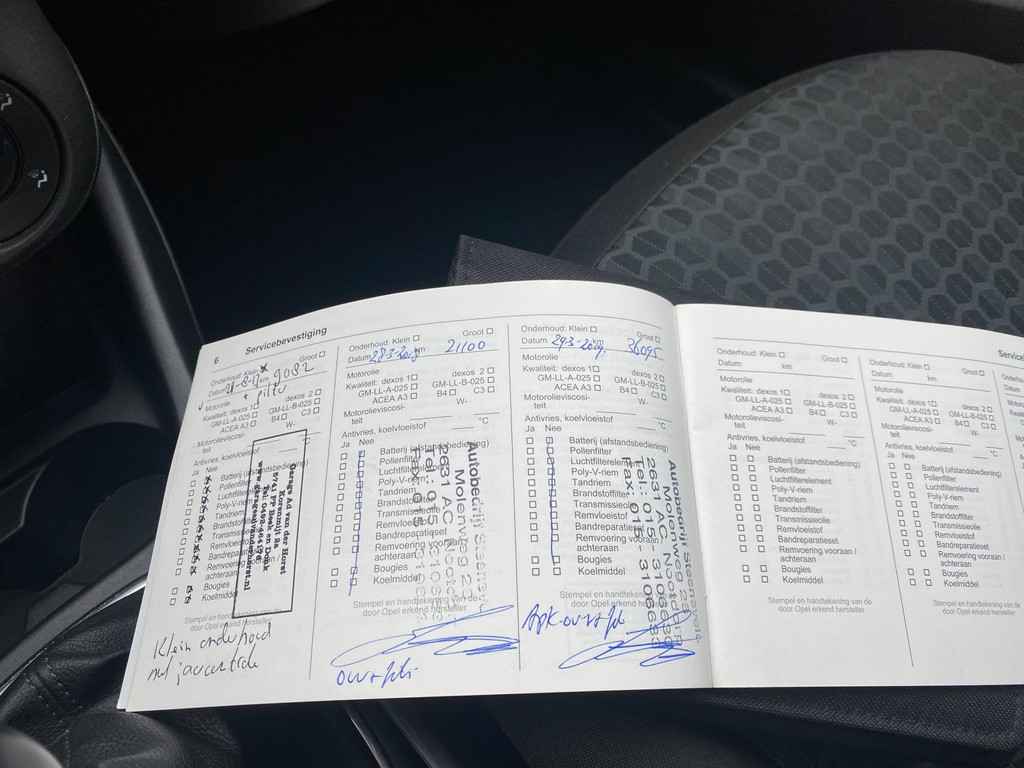 6 Servicebevestiging
Onderhoud: Klein Groot
Datum km 9082
Motorolie
Kwaliteit: dexos 1 dexos 2
GM-LL-A-025 GM-LL-B-025
ACEA A3 B4 C3
Motorolieviscosi- W-
teit °C
Antivries, koelvloeistof
Ja Nee
Batterij (afstandsbediening)
Pollenfilter
Luchtfilterelement
Poly-V-riem
Tandriem
Brandstoffilter
Transmissieolie
Remvloeistof
Bandreparatieset
Remvoering vooraan /
achteraan
Bougies
Koelmiddel
Stempel en handtekening van de
door Opel erkend hersteller
Garage Ad van der Horst
Korenmijt 8
5741 PP Beek en Donk
www.garageadvanderhorst.nl
Klein onderhoud
Onderhoud: Klein Groot
Datum 28-3-2018 km 21100
Motorolie
Kwaliteit: dexos 1 dexos 2
GM-LL-A-025 GM-LL-B-025
ACEA A3 B4 C3
Motorolieviscosi- W-
teit °C
Antivries, koelvloeistof
Ja Nee
Batterij (afstandsbediening)
Pollenfilter
Luchtfilterelement
Poly-V-riem
Tandriem
Brandstoffilter
Transmissieolie
Remvloeistof
Bandreparatieset
Remvoering vooraan /
achteraan
Bougies
Koelmiddel
Stempel en handtekening van de
door Opel erkend hersteller
Autobedrijf
Molenweg 2
2631 AC
Tel.: 015-
Fax: 015-
Onderhoud: Klein Groot
Datum 29-3-2019 km 36095
Motorolie
Kwaliteit: dexos 1 dexos 2
GM-LL-A-025 GM-LL-B-025
ACEA A3 B4 C3
Motorolieviscosi- W-
teit °C
Antivries, koelvloeistof
Ja Nee
Batterij (afstandsbediening)
Pollenfilter
Luchtfilterelement
Poly-V-riem
Tandriem
Brandstoffilter
Transmissieolie
Remvloeistof
Bandreparatieset
Remvoering vooraan /
achteraan
Bougies
Koelmiddel
Stempel en handtekening van de
door Opel erkend hersteller
Autobedrijf
Molenweg 2
2631 AC
Tel.: 015-
Fax: 015-
Onderhoud: Klein Groot
Datum: km
Motorolie
Kwaliteit: dexos 1 dexos 2
GM-LL-A-025 GM-LL-B-025
ACEA A3 B4 C3
Motorolieviscosi- W-
teit °C
Antivries, koelvloeistof
Ja Nee
Batterij (afstandsbediening)
Pollenfilter
Luchtfilterelement
Poly-V-riem
Tandriem
Brandstoffilter
Transmissieolie
Remvloeistof
Bandreparatieset
Remvoering vooraan /
achteraan
Bougies
Koelmiddel
Stempel en handtekening van de
door Opel erkend hersteller
Onderhoud: Klein Groot
Datum: km
Motorolie
Kwaliteit: dexos 1 dexos 2
GM-LL-A-025 GM-LL-B-025
ACEA A3 B4 C3
Motorolieviscosi- W-
teit °C
Antivries, koelvloeistof
Ja Nee
Batterij (afstandsbediening)
Pollenfilter
Luchtfilterelement
Poly-V-riem
Tandriem
Brandstoffilter
Transmissieolie
Remvloeistof
Bandreparatieset
Remvoering vooraan /
achteraan
Bougies
Koelmiddel
Stempel en handtekening van
door Opel erkend hersteller